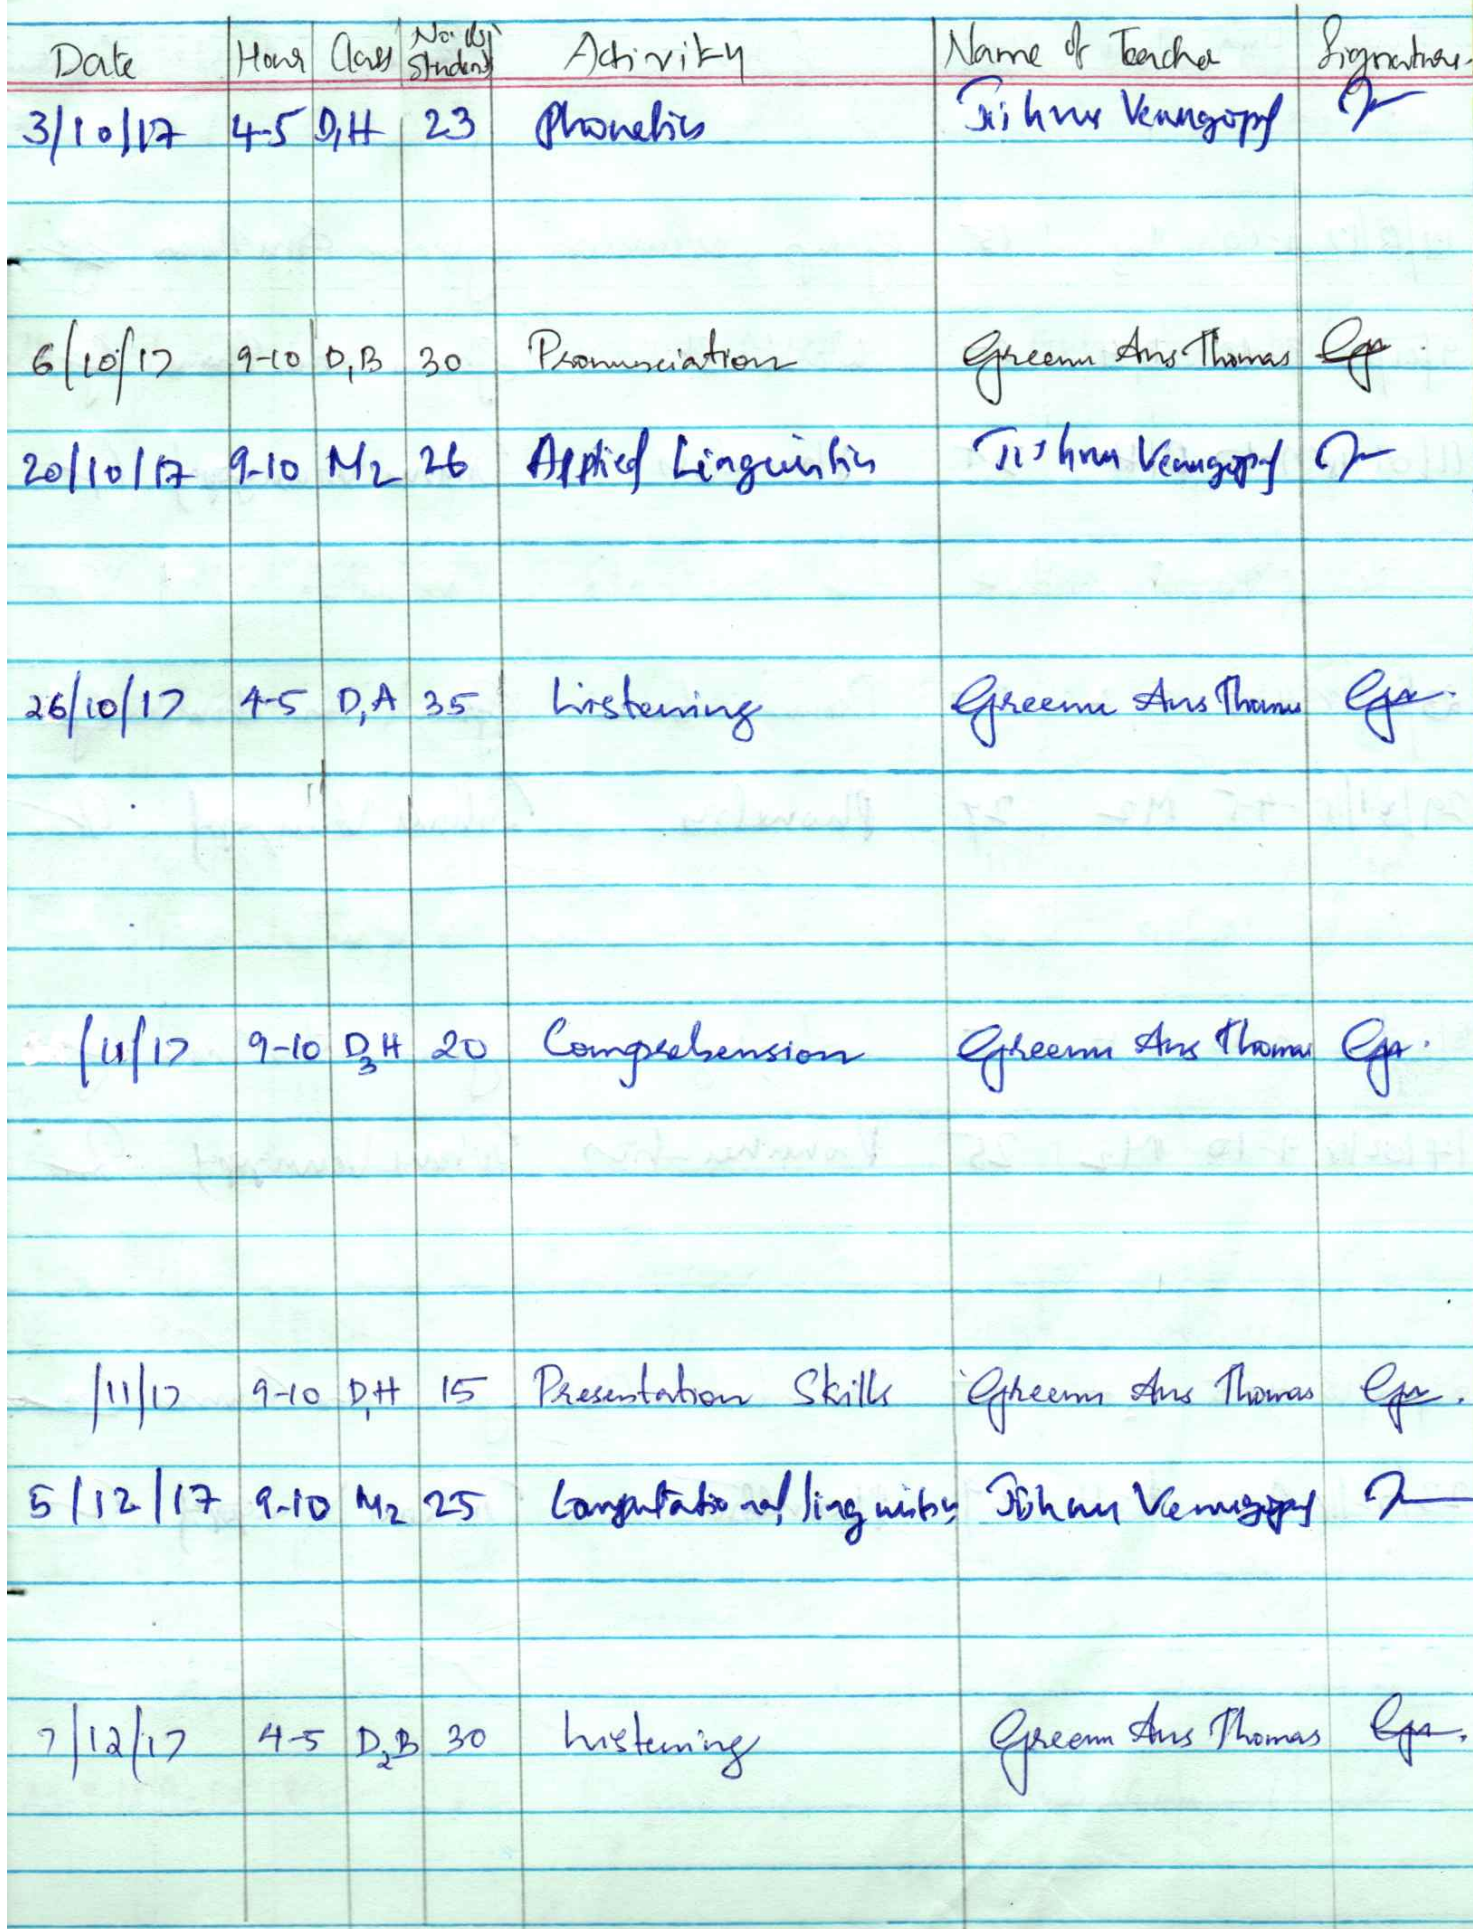 Date Hour Class No. of Students Activity Name of Teacher Signature
3/10/17 4-5 D1H 23 Phonetics Venugopal
6/10/17 9-10 D1B 30 Pronunciation Greenu Ans Thomas
20/10/17 9-10 M2 26 Applied Linguistics Venugopal
26/10/17 4-5 D1A 35 Listening Greenu Ans Thomas
/11/17 9-10 D3H 20 Comprehension Greenu Ans Thomas
/11/17 9-10 D1H 15 Presentation Skills Greenu Ans Thomas
5/12/17 9-10 M2 25 Computational linguistics Venugopal
7/12/17 4-5 D2B 30 Listening Greenu Ans Thomas